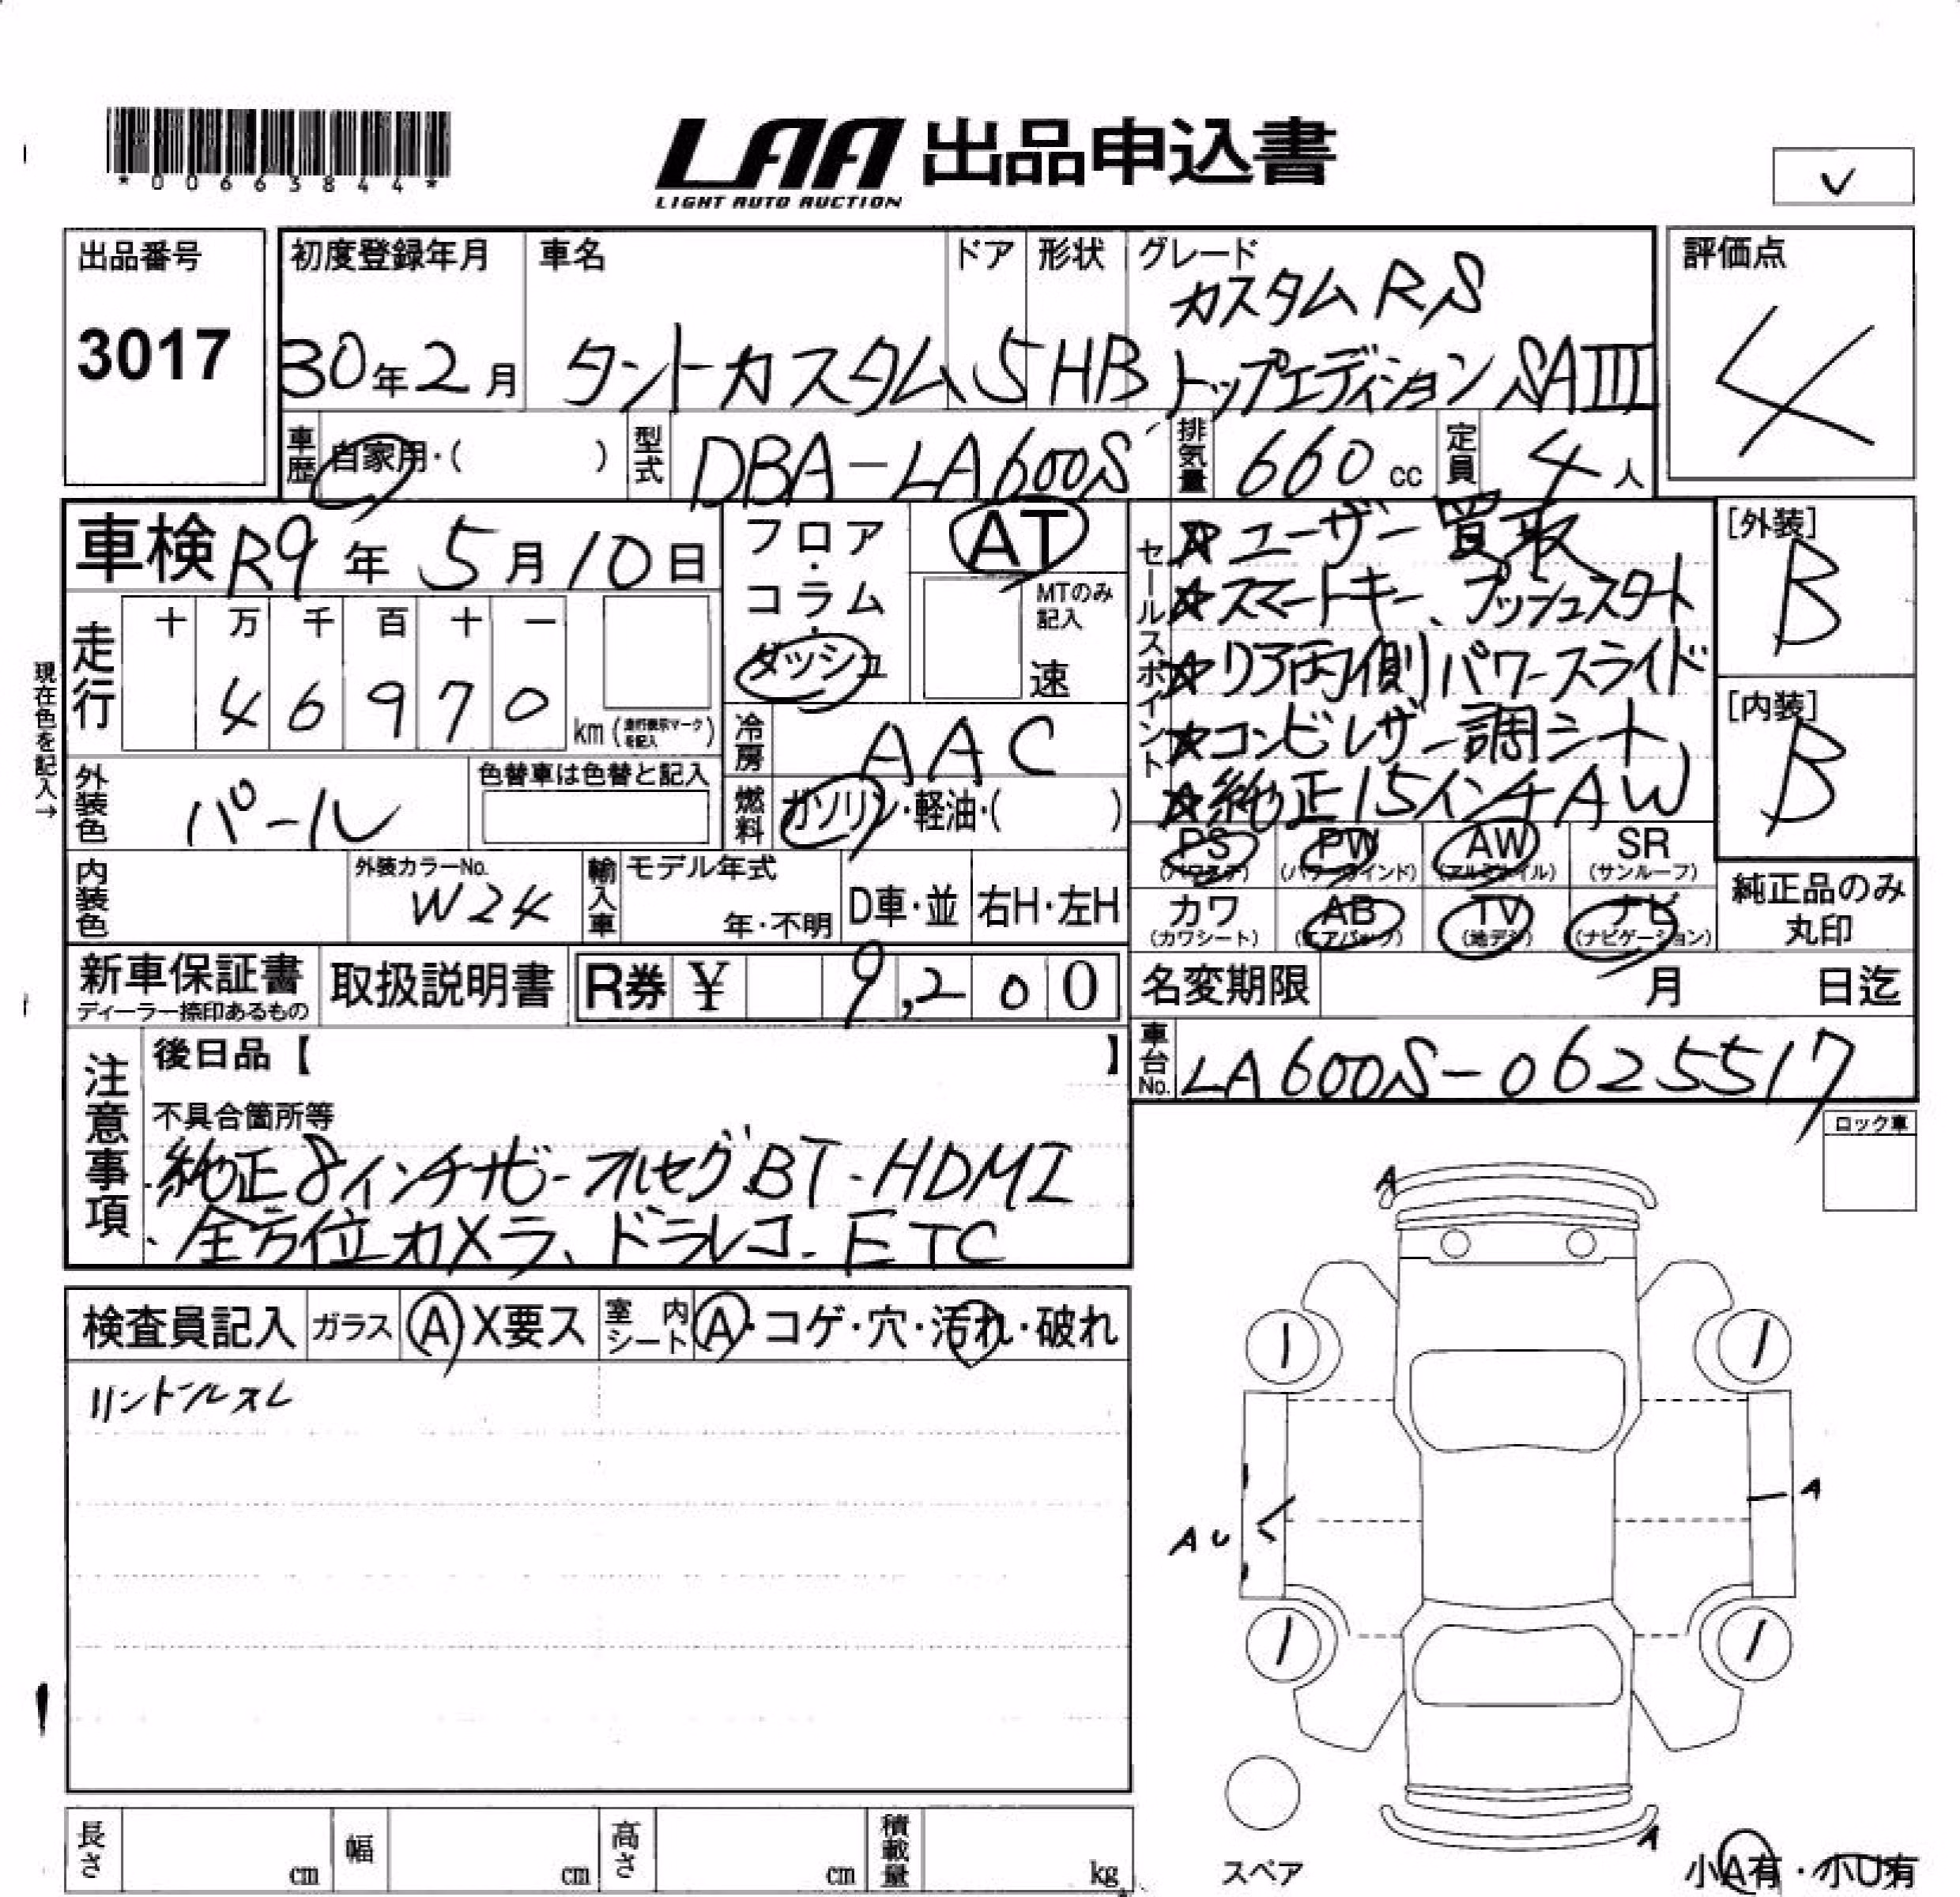 *00663844*
LAA 出品申込書
LIGHT AUTO AUCTION
✓
出品番号
3017
初度登録年月
30年2月
車名
タントカスタム
ドア
5
形状
HB
グレード
カスタムRS
トップエディションSAIII
評価点
4
車歴
自家用・( )
型式
DBA-LA600S
排気量
660 cc
定員
4人
車検 R9年5月10日
フロア・コラム・ダッシュ
AT
MTのみ記入
速
セールスポイント
☆ユーザー買取
☆スマートキー、プッシュスタート
☆リア両側パワースライド
☆コンビレザー調シート、
☆純正15インチAW
[外装]
B
[内装]
B
現在色を記入→
走行
十 万 千 百 十 一
4 6 9 7 0
km(走行表示マークを記入)
冷房
AAC
外装色
パール
色替車は色替と記入
燃料
ガソリン・軽油・( )
PS(パワステ) PW(パワーウインド) AW(アルミホイル) SR(サンルーフ)
カワ(カワシート) AB(エアバック) TV(地デジ) ナビ(ナビゲーション)
純正品のみ
丸印
内装色
外装カラーNo.
W24
輸入車
モデル年式
年・不明
D車・並
右H・左H
新車保証書
ディーラー捺印あるもの
取扱説明書
R券 ¥ 9,200
名変期限 月 日迄
車台No.
LA600S-0625517
注意事項
後日品【 】
不具合箇所等
純正8インチナビ-フルセグ.BT-HDMI
全方位カメラ、ドラレコ-ETC
ロック車
検査員記入
ガラス A X要ス
室内シート A・コゲ・穴・汚れ・破れ
A
A
AU
A
スペア
小A有・小U有
長さ cm
幅 cm
高さ cm
積載量 kg